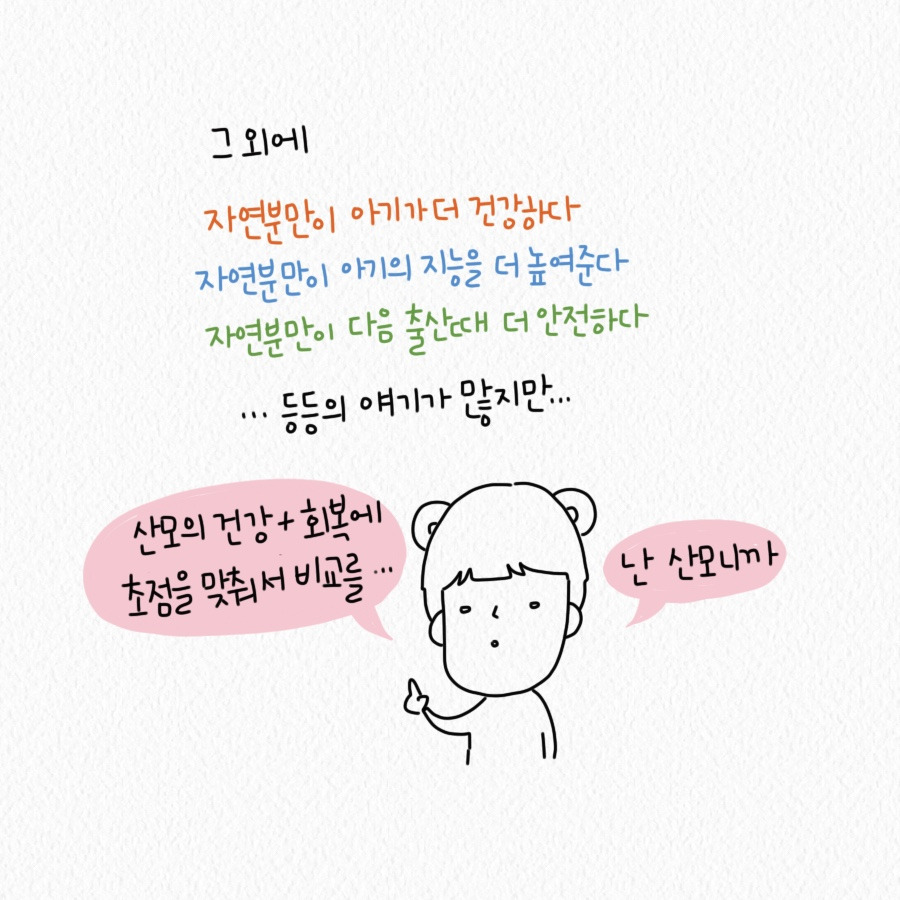 그 외에
자연분만이 아기가 더 건강하다
자연분만이 아기의 지능을 더 높여준다
자연분만이 다음 출산때 더 안전하다
... 등등의 얘기가 많지만...
산모의 건강 + 회복에
초점을 맞춰서 비교를 ...
난 산모니까